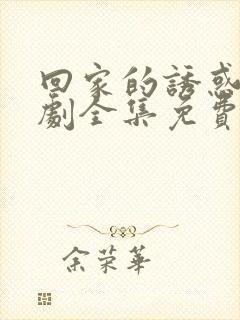 回家的誘惑
劇全集免費
余荣華